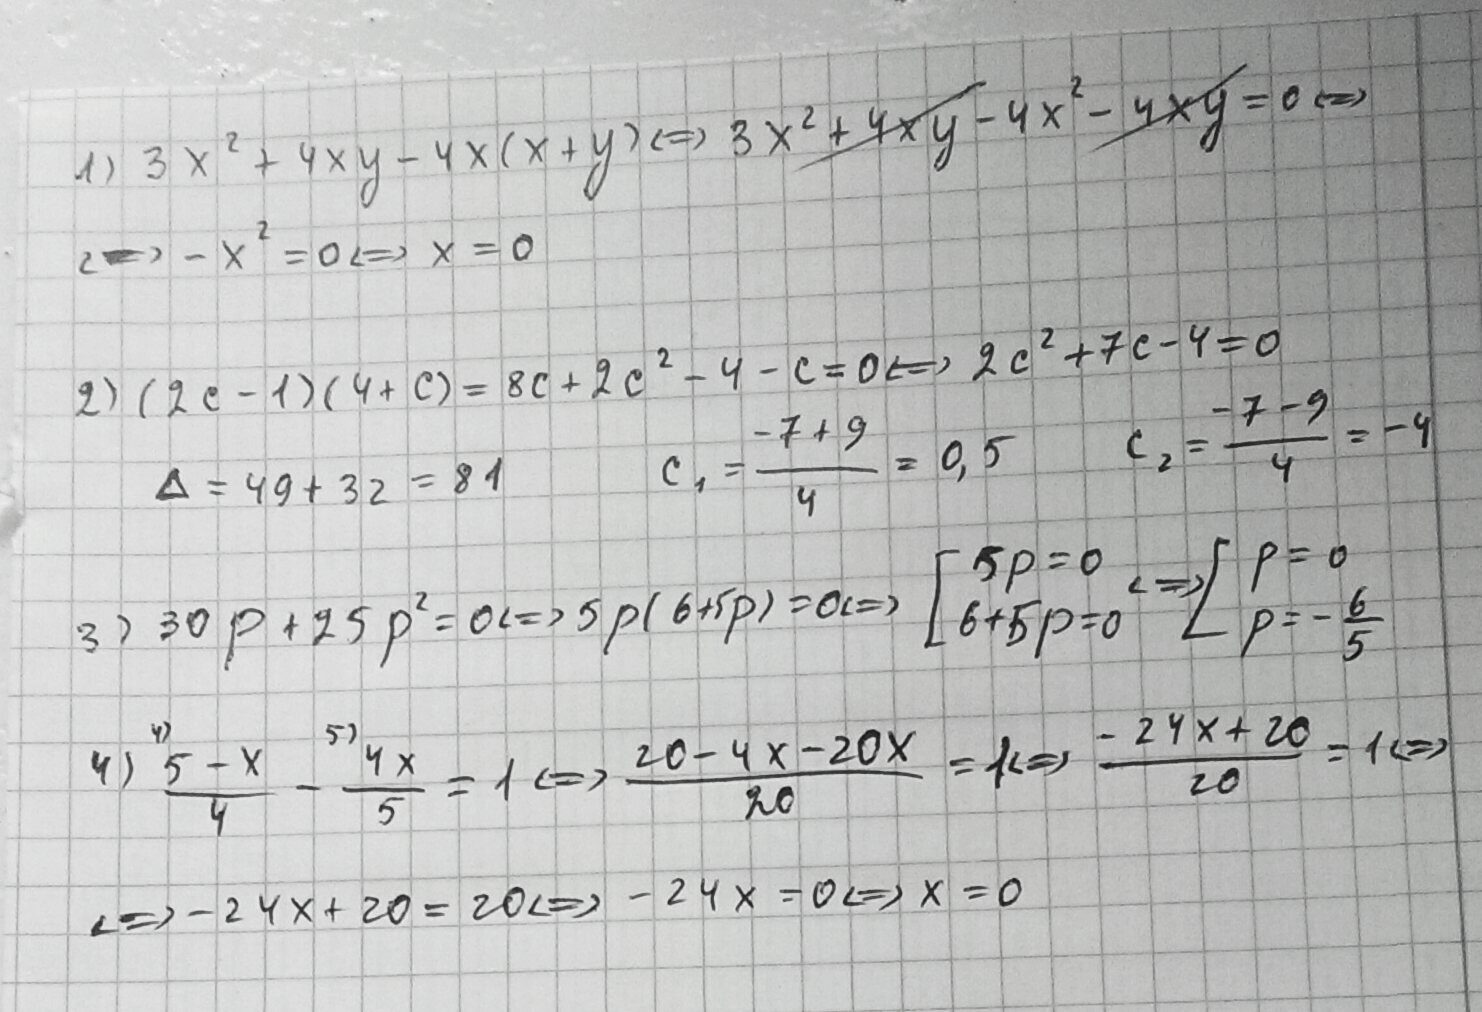 1) 3x² + 4xy - 4x(x+y) <=> 3x² + 4xy - 4x² - 4xy = 0 <=>
<=> -x² = 0 <=> x = 0
2) (2c - 1)(4 + c) = 8c + 2c² - 4 - c = 0 <=> 2c² + 7c - 4 = 0
Δ = 49 + 32 = 81 c₁ = (-7 + 9)/4 = 0,5 c₂ = (-7 - 9)/4 = -4
3) 30p + 25p² = 0 <=> 5p(6+5p) = 0 <=> [5p = 0 6+5p = 0 <=> [p = 0 p = -6/5
4) ⁴⁾(5 - x)/4 - ⁵⁾4x/5 = 1 <=> (20 - 4x - 20x)/20 = 1 <=> (-24x + 20)/20 = 1 <=>
<=> -24x + 20 = 20 <=> -24x = 0 <=> x = 0